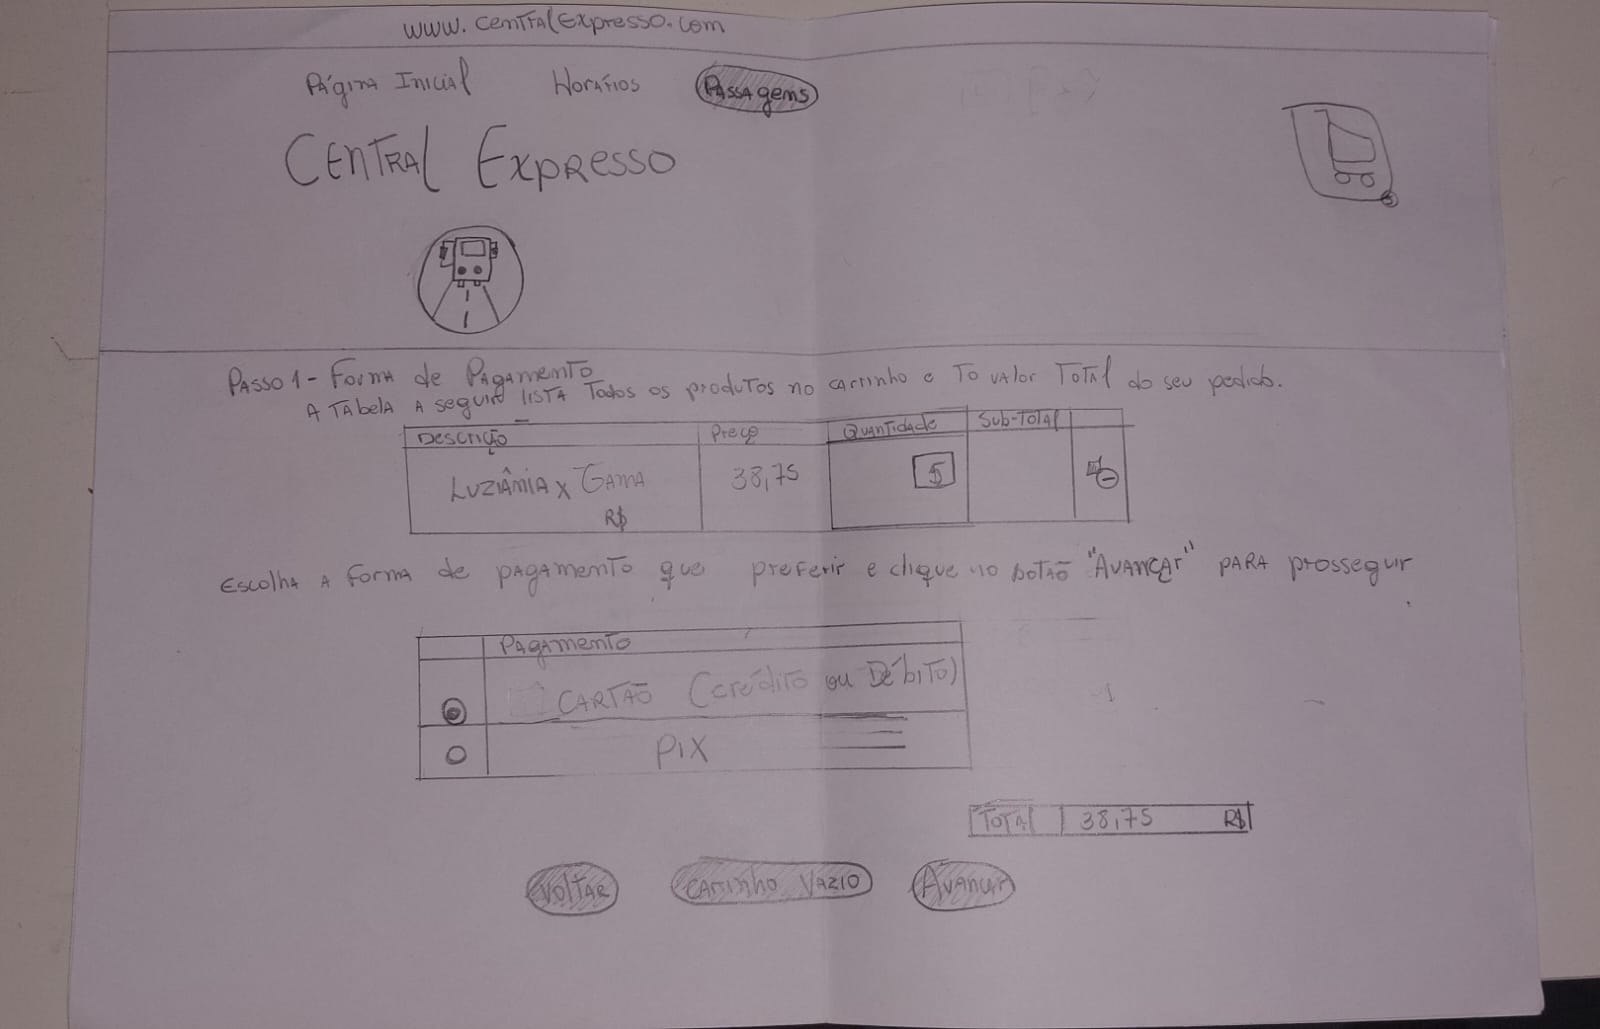 www.CentralExpresso.com
Página Inicial Horários Passagens
Central Expresso
Passo 1 - Forma de Pagamento
A Tabela a seguir lista Todos os produtos no carrinho e To valor Total do seu pedido.
Descrição Preço Quantidade Sub-Total
Luziânia x Gama 38,75 5
R$
Escolha a forma de pagamento que preferir e clique no botão "Avançar" para prosseguir
Pagamento
Cartão (crédito ou Débito)
Pix
Total 38,75 R$
Voltar Carrinho Vazio Avançar